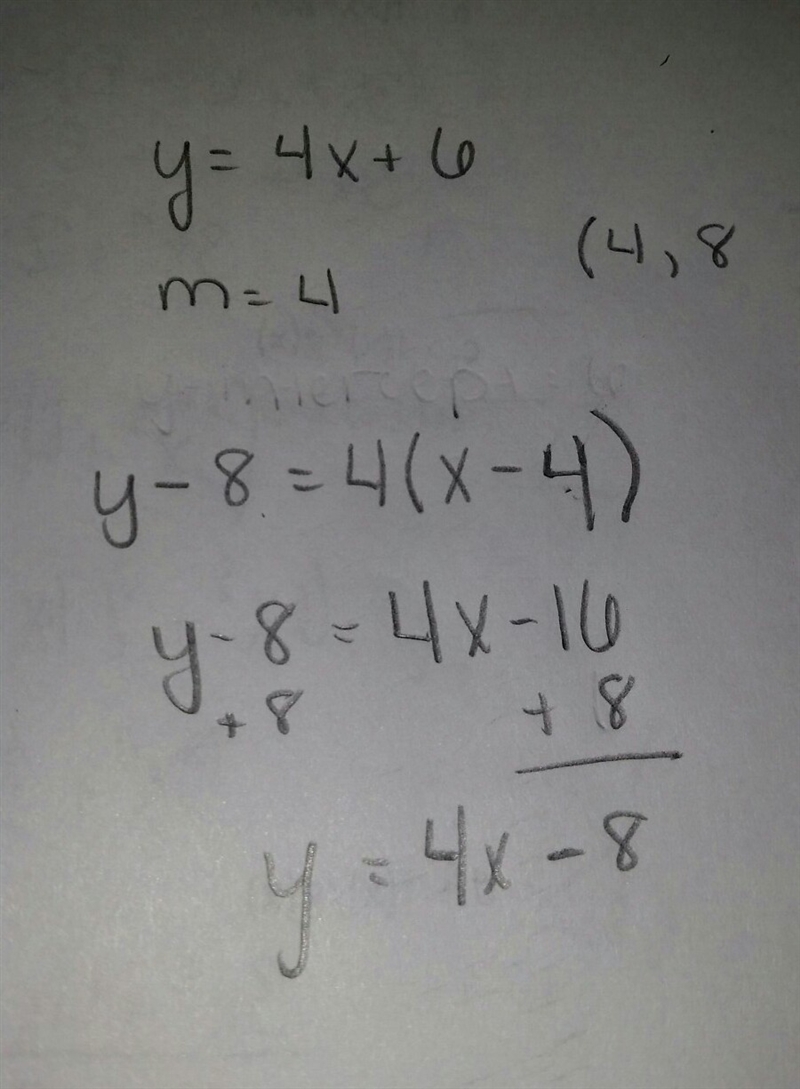 y = 4x + 6
(4, 8
m = 4
y - 8 = 4(x - 4)
y - 8 = 4x - 16
+ 8 + 8
y = 4x - 8